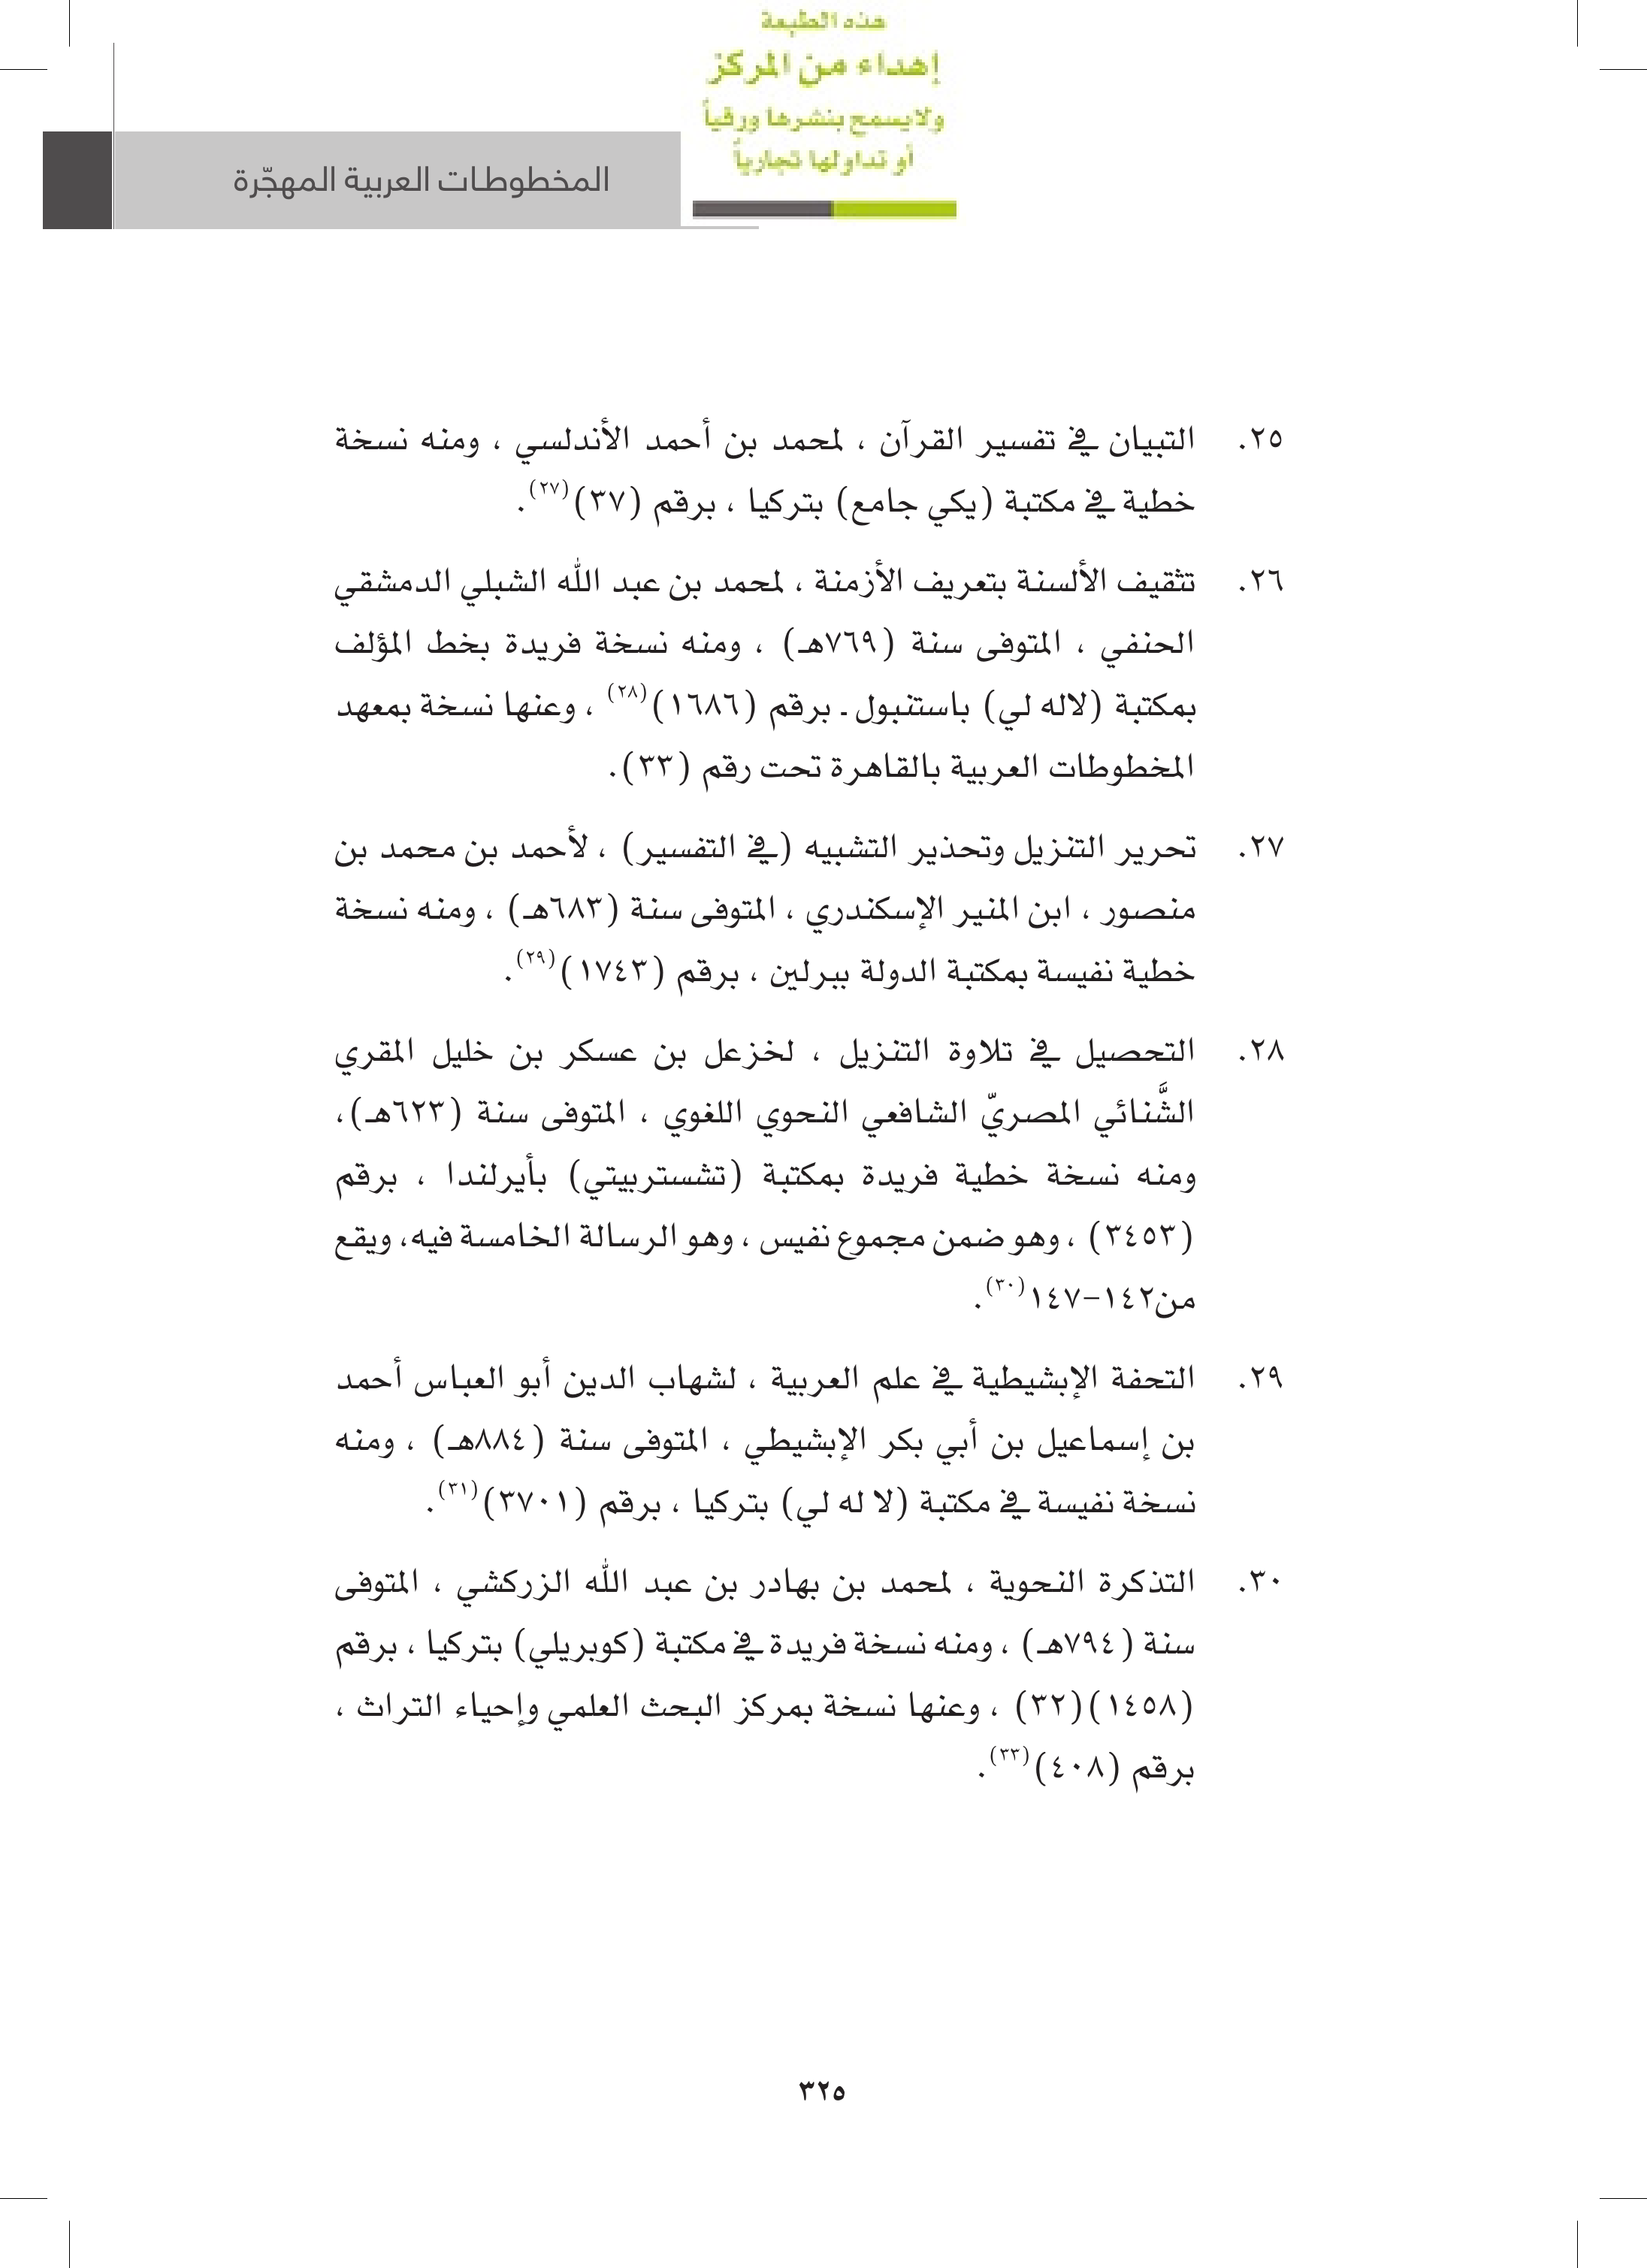 هذه الطبعة
إهداء من المركز
ولايسمح بنشرها ورقياً
أو تداولها تجارياً
المخطوطات العربية المهجّرة
٢٥. التبيان في تفسير القرآن ، لمحمد بن أحمد الأندلسي ، ومنه نسخة
خطية في مكتبة (يكي جامع) بتركيا ، برقم (٣٧)(٢٧).
٢٦. تثقيف الألسنة بتعريف الأزمنة ، لمحمد بن عبد الله الشبلي الدمشقي
الحنفي ، المتوفى سنة (٧٦٩هـ) ، ومنه نسخة فريدة بخط المؤلف
بمكتبة (لاله لي) باستنبول ـ برقم (١٦٨٦)(٢٨) ، وعنها نسخة بمعهد
المخطوطات العربية بالقاهرة تحت رقم (٣٣).
٢٧. تحرير التنزيل وتحذير التشبيه (في التفسير) ، لأحمد بن محمد بن
منصور ، ابن المنير الإسكندري ، المتوفى سنة (٦٨٣هـ) ، ومنه نسخة
خطية نفيسة بمكتبة الدولة ببرلين ، برقم (١٧٤٣)(٢٩).
٢٨. التحصيل في تلاوة التنزيل ، لخزعل بن عسكر بن خليل المقري
الشَّنائي المصريّ الشافعي النحوي اللغوي ، المتوفى سنة (٦٢٣هـ)،
ومنه نسخة خطية فريدة بمكتبة (تشستربيتي) بأيرلندا ، برقم
(٣٤٥٣) ، وهو ضمن مجموع نفيس ، وهو الرسالة الخامسة فيه، ويقع
من١٤٢-١٤٧(٣٠).
٢٩. التحفة الإبشيطية في علم العربية ، لشهاب الدين أبو العباس أحمد
بن إسماعيل بن أبي بكر الإبشيطي ، المتوفى سنة (٨٨٤هـ) ، ومنه
نسخة نفيسة في مكتبة (لا له لي) بتركيا ، برقم (٣٧٠١)(٣١).
٣٠. التذكرة النحوية ، لمحمد بن بهادر بن عبد الله الزركشي ، المتوفى
سنة (٧٩٤هـ) ، ومنه نسخة فريدة في مكتبة (كوبريلي) بتركيا ، برقم
(١٤٥٨)(٣٢) ، وعنها نسخة بمركز البحث العلمي وإحياء التراث ،
برقم (٤٠٨)(٣٣).
٣٢٥